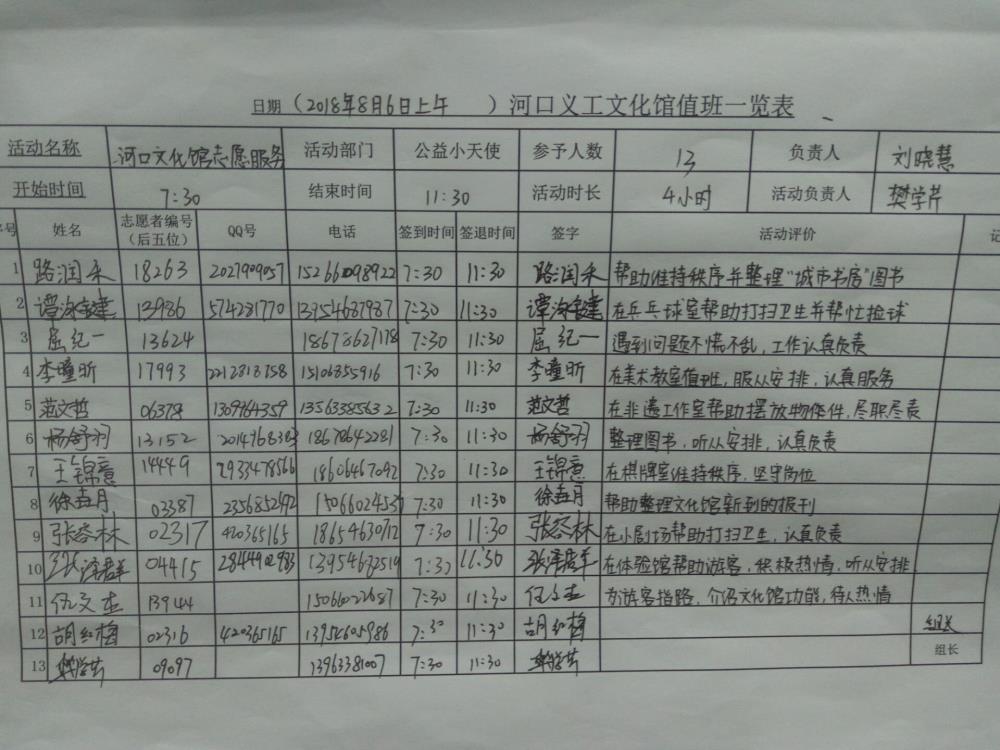 日期（2018年8月6日上午 ）河口义工文化馆值班一览表
活动名称 河口文化馆志愿服务 活动部门 公益小天使 参予人数 13 负责人 刘晓慧
开始时间 7:30 结束时间 11:30 活动时长 4小时 活动负责人 樊学芹
序号 姓名 志愿者编号（后五位） QQ号 电话 签到时间 签退时间 签字 活动评价 记
1 路润禾 18263 2027909057 15266098922 7:30 11:30 路润禾 帮助维持秩序并整理"城市书房"图书
2 13986 574281770 13954687987 7:30 11:30 在乒乓球室帮助打扫卫生并帮忙捡球
3 屈纪一 13624 18678627178 7:30 11:30 屈纪一 遇到问题不慌不乱，工作认真负责
4 李曈昕 17993 2212818758 15106855916 7:30 11:30 李曈昕 在美术教室值班，服从安排，认真服务
5 范文哲 06378 1369964359 13563385632 7:30 11:30 范文哲 在非遗工作室帮助摆放物件，尽职尽责
6 杨舒羽 13152 2014768383 18678642281 7:30 11:30 杨舒羽 整理图书，听从安排，认真负责
7 王锦意 14449 2933478566 18606467092 7:30 11:30 王锦意 在棋牌室维持秩序，坚守岗位
8 徐垚月 03387 2356852492 15066024537 7:30 11:30 徐垚月 帮助整理文化馆新到的报刊
9 张容林 02317 420365165 18654630712 7:30 11:30 张容林 在小剧场帮助打扫卫生，认真负责
10 张泽群 04415 2844902983 13954682519 7:30 11:30 张泽群 在体验馆帮助游客，积极热情，听从安排
11 任文杰 13944 15066022687 7:30 11:30 任文杰 为游客指路，介绍文化馆功能，待人热情
12 胡红梅 02316 420365165 13954605986 7:30 11:30 胡红梅 组长
13 09097 13963381007 7:30 11:30 组长